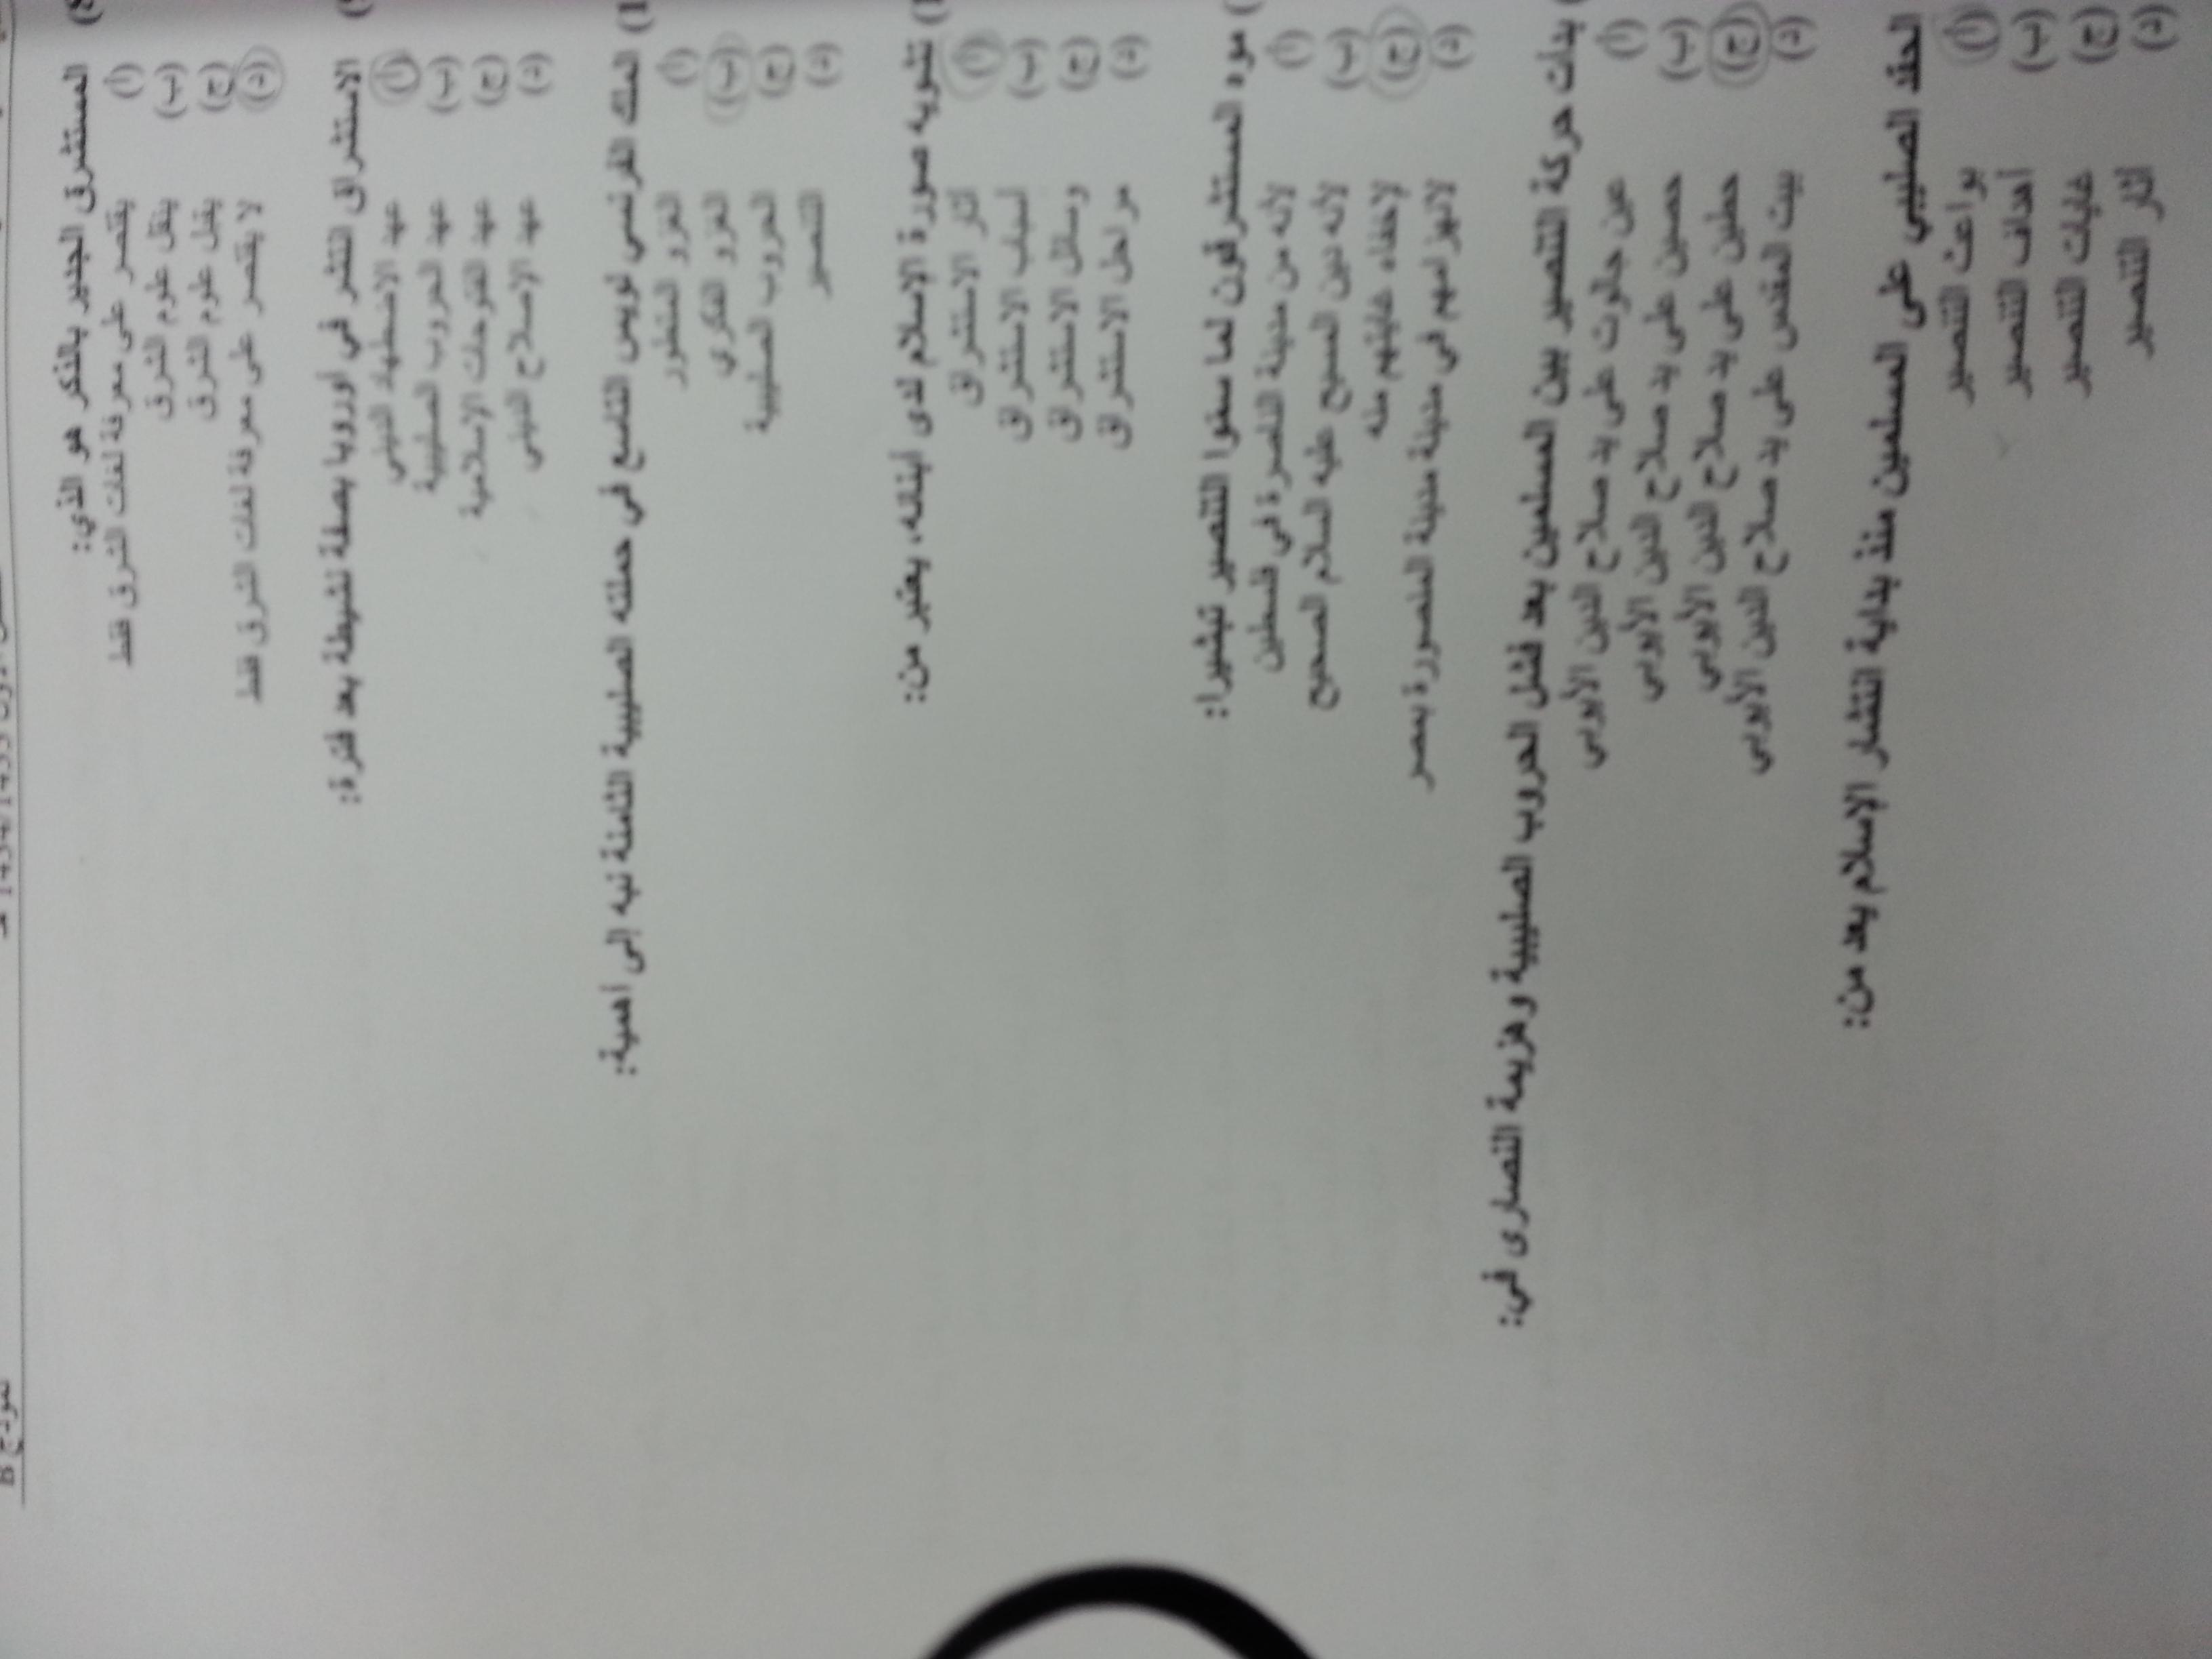 نموذج B
1434/1433 هـ
8) المستشرق الجدير بالذكر هو الذي:
(أ) يقتصر على معرفة لغات الشرق فقط
(ب) ينقل علوم الشرق
(ج) يقل علوم الشرق
(د) لا يقتصر على معرفة لغات الشرق فقط
الاستشراق انتشر في أوروبا بصفة نشيطة بعد فترة:
(أ) عهد الاضطهاد الديني
(ب) عهد الحروب الصليبية
(ج) عهد الفتوحات الإسلامية
(د) عهد الإصلاح الديني
الملك الفرنسي لويس التاسع في حملته الصليبية الثامنة نبه إلى أهمية:
(أ) الغزو المتطور
(ب) الغزو الفكري
(ج) الحروب الصليبية
(د) التنصير
تشويه صورة الإسلام لدى أبنائه، يعتبر من:
(أ) آثار الاستشراق
(ب) أسباب الاستشراق
(ج) وسائل الاستشراق
(د) مراحل الاستشراق
موه المستشرقون لما سموا التنصير تبشيرا:
(أ) لأنه من مدينة الناصرة في فلسطين
(ب) لأنه دين المسيح عليه السلام الصحيح
(ج) لإخفاء غايتهم منه
(د) لانهزامهم في مدينة المنصورة بمصر
بدات حركة التنصير بين المسلمين بعد فشل الحروب الصليبية وهزيمة النصارى في:
(أ) عين جالوت على يد صلاح الدين الأيوبي
(ب) حصين على يد صلاح الدين الأيوبي
(ج) حطين على يد صلاح الدين الأيوبي
(د) بيت المقدس على يد صلاح الدين الأيوبي
الحقد الصليبي على المسلمين منذ بداية انتشار الإسلام يعد من:
(أ) بواعث التنصير
(ب) أهداف التنصير
(ج) غايات التنصير
(د) آثار التنصير